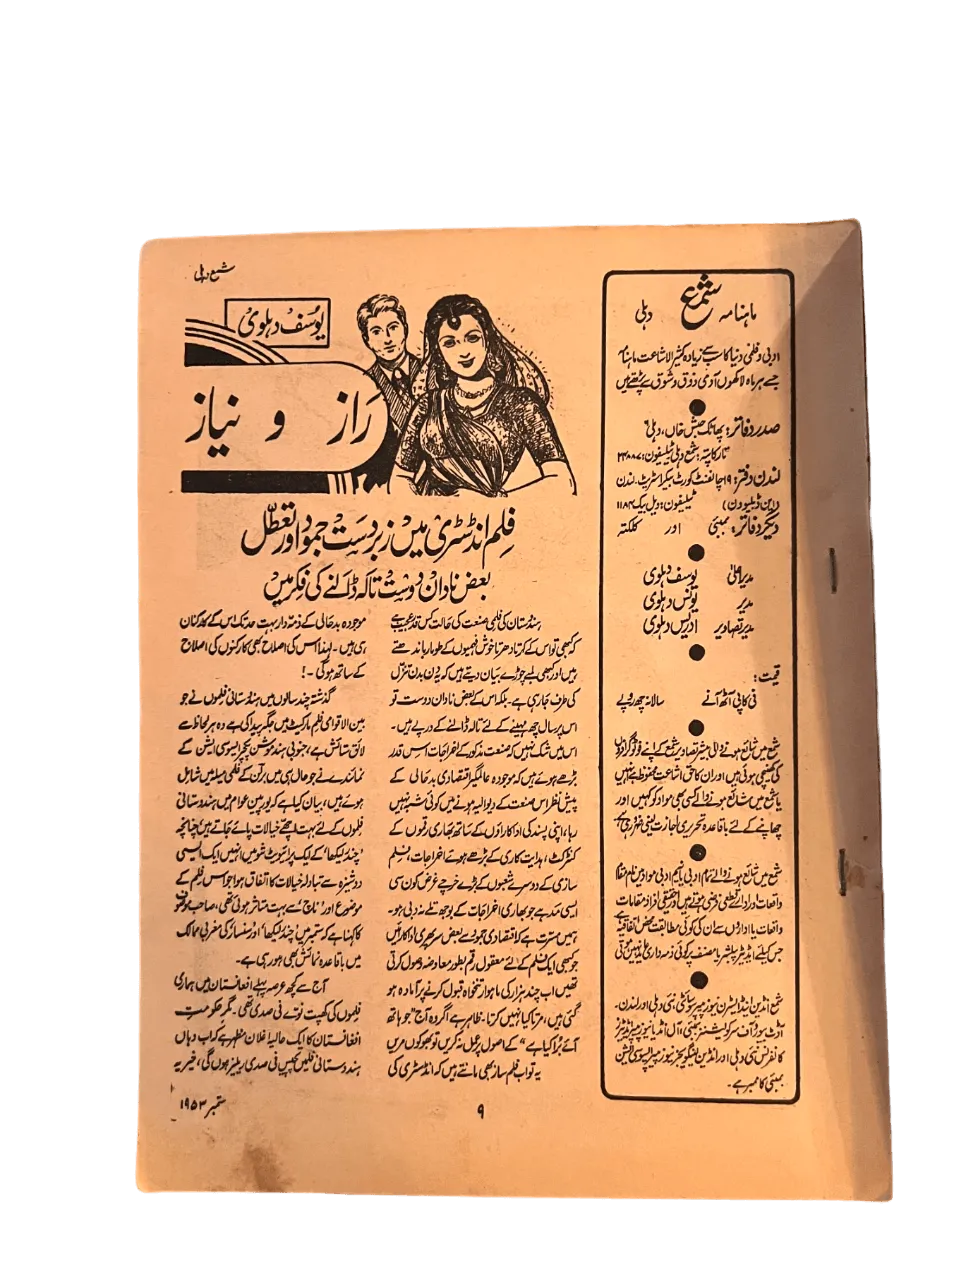 شمع دہلی
ماہنامہ شمع دہلی
ادبی و فلمی دنیا کا سب سے زیادہ کثیر الاشاعت ماہنامہ
جسے ہر ماہ لاکھوں آدمی ذوق و شوق سے پڑھتے ہیں
صدر دفاتر: پھاٹک حبش خاں، دہلی
تار کا پتہ: شمع دہلی ٹیلیفون: ۲۳۸۸۷
لندن دفتر: ۱۹ چالفنٹ کورٹ بیکر اسٹریٹ۔ لندن
(این ڈبلیو ون) ٹیلیفون: ویل بیک ۱۱۸۴
دیگر دفاتر: بمبئی اور کلکتہ
مدیر اعلیٰ یوسف دہلوی
مدیر یونس دہلوی
مدیر تصاویر ادریس دہلوی
قیمت:
فی کاپی آٹھ آنے سالانہ چھ روپے
شمع میں شائع ہونے والی بیشتر تصاویر شمع کے اپنے فوٹوگرافروں
کی کھینچی ہوئی ہیں اور ان کا حق اشاعت محفوظ ہے انہیں
یا شمع میں شائع ہونے والے کسی بھی مواد کو کہیں اور
چھاپنے کے لئے باقاعدہ تحریری اجازت لینی ضروری ہے
شمع میں شائع ہونے والے تمام ادبی یا نیم ادبی مواد میں نام مقاما
واقعات اور ادارے قطعی فرضی ہوتے ہیں اور حقیقی افراد مقامات
واقعات یا اداروں سے ان کی کوئی مطابقت محض اتفاقیہ ہے
جس کیلئے ایڈیٹر پبلشر یا مصنف پر کوئی ذمہ داری عائد نہیں ہوتی
شمع انڈین اینڈ ایسٹرن نیوز پیپر سوسائٹی، نئی دہلی اور لندن۔
آڈٹ بیورو آف سرکولیشنز بمبئی، آل انڈیا نیوز پیپر ایڈیٹرز
کانفرنس نئی دہلی اور انڈین لینگویجز نیوز پیپر ایسوسی ایشن
بمبئی کا ممبر ہے۔
یوسف دہلوی
راز و نیاز
فلم انڈسٹری میں زبردست جمود اور تعطل
بعض نادان دوست تالہ ڈالنے کی فکر میں
ہندستان کی فلمی صنعت کی حالت کس قدر عجیب ہے
کہ کبھی تو اس کے کرتا دھرتا خوش فہمیوں کے طومار باندھتے
ہیں اور کبھی لمبے چوڑے بیان دیتے ہیں کہ یہ دن بدن تنزل
کی طرف جا رہی ہے۔ بلکہ اس کے بعض نادان دوست تو
اس پر سال چھ مہینے کے لئے تالہ ڈالنے کے درپے ہیں۔
اس میں شک نہیں کہ صنعت مذکور کے اخراجات اس قدر
بڑھے ہوئے ہیں کہ موجودہ عالمگیر اقتصادی بدحالی کے
پیش نظر اس صنعت کے دیوالیہ ہونے میں کوئی شبہ نہیں
رہا، اپنی پسند کی اداکاراؤں کے ساتھ بھاری رقموں کے
کنٹرکٹ، ہدایت کاری کے بڑھے ہوئے اخراجات، فلم
سازی کے دوسرے شعبوں کے بڑے خرچے غرض کون سی
ایسی مد ہے جو بھاری اخراجات کے بوجھ تلے نہ دبی ہو۔
ہمیں مسرت ہے کہ اقتصادی جمود سے بعض سر پھری اداکارئیں
جو کبھی ایک فلم کے لئے معقول رقم بطور معاوضہ وصول کرتی
تھیں اب چند ہزار کی ماہوار تنخواہ قبول کرنے پر آمادہ ہو
گئی ہیں، مرتا کیا نہیں کرتا۔ ظاہر ہے اگر وہ آج "جو ہاتھ
آئے بُرا کیا ہے" کے اصول پر عمل نہ کریں تو بھوکوں مریں
یہ تو اب فلم ساز بھی مانتے ہیں کہ انڈسٹری کی
موجودہ بدحالی کے ذمہ دار بہت حد تک اس کے کارکنان
ہی ہیں۔ لہٰذا اس کی اصلاح بھی کارکنوں کی اصلاح
کے ساتھ ہوگی۔!
گذشتہ چند سالوں میں ہندوستانی فلموں نے جو
بین الاقوامی فلم مارکیٹ میں جگہ پیدا کی ہے وہ ہر لحاظ سے
لائق ستائش ہے، جنوبی ہند موشن پکچر ایسوسی ایشن کے
نمائندے نے جو حال ہی میں برلن کے فلمی میلہ میں شامل
ہوئے ہیں، بیان کیا ہے کہ یورپین عوام میں ہندوستانی
فلموں کے لئے بہت اچھے خیالات پائے جاتے ہیں، چنانچہ
'چندر لیکھا' کے ایک پرائیویٹ شو میں انہیں ایک ایسی
دوشیزہ سے تبادلہ خیالات کا اتفاق ہوا جو اس فلم کے
موضوع اور 'ناچ' سے بہت متاثر ہوئی تھی، صاحب موصوف
کا کہنا ہے کہ ستمبر میں 'چندر لیکھا' اور 'سنسار' کی مغربی ممالک
میں باقاعدہ نمائش بھی ہو رہی ہے۔
آج سے کچھ عرصہ پہلے افغانستان میں ہماری
فلموں کی کھپت نوے فی صدی تھی۔ مگر حکومت
افغانستان کا ایک حالیہ اعلان مظہر ہے کہ اب وہاں
ہندوستانی فلمیں پچیس فی صدی ریلیز ہوں گی، خیر یہ
۹
ستمبر ۱۹۵۳